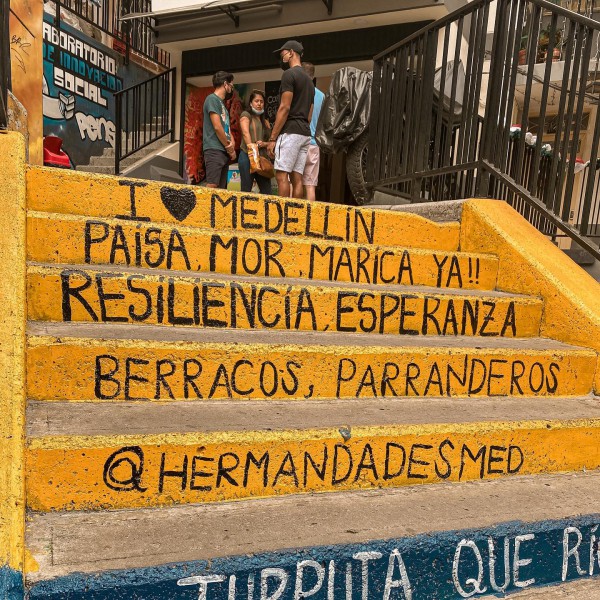 LABORATORIO
DE INNOVACIÓN
SOCIAL
I ♥ MEDELLÍN
PAISA, MOR, MARICA YA!!
RESILIENCIA, ESPERANZA
BERRACOS, PARRANDEROS
@HERMANDADESMED
TURPUTA QUE RÍ